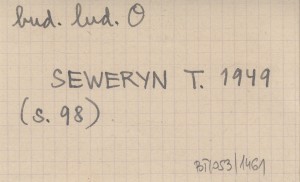 bud. lud. O
SEWERYN T. 1949
(s. 98)
BT/053/1461